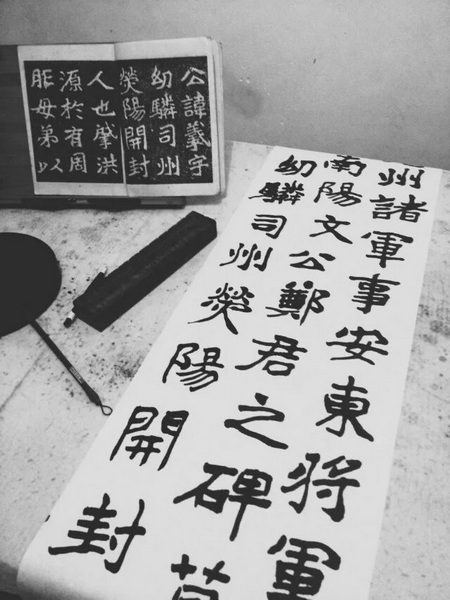 公諱羲字
幼驎司州
熒陽開封
人也肇洪
源於有周
胙母弟以
州諸軍事安東將軍
南陽文公鄭君之碑
幼驎司州熒陽開封